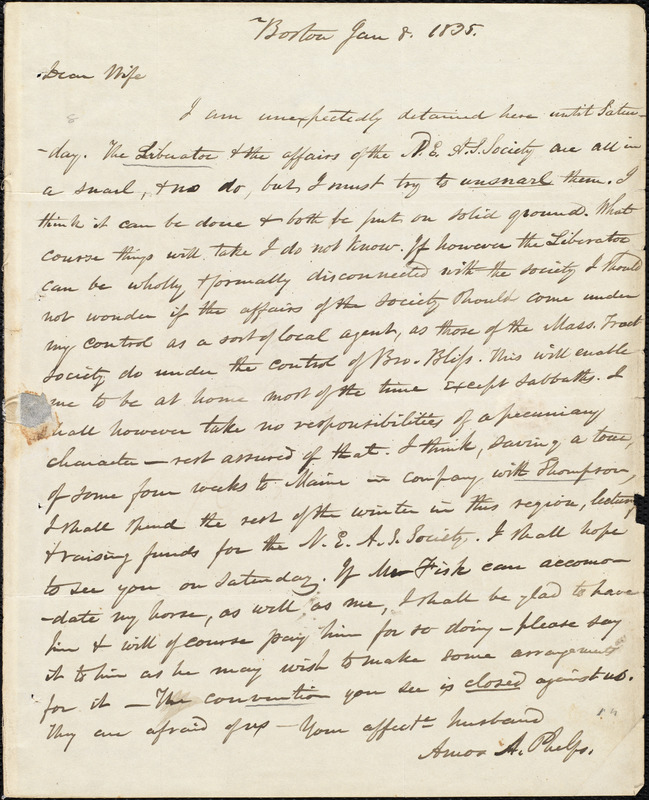 Boston Jan 8. 1835.
Dear Wife
I am unexpectedly detained here until Satur-
-day. The Liberator & the affairs of the N. E. A. S. Society are all in
a snarl, & no do, but I must try to unsnarl them. I
think it can be done & both be put on solid ground. What
course things will take I do not know. If however the Liberator
can be wholly & formally disconnected with the society I should
not wonder if the affairs of the Society should come under
my control as a sort of local agent, as those of the Mass. Tract
Society do under the control of Bro. Bliss. This will enable
me to be at home most of the time except Sabbaths. I
shall however take no responsibilities of a pecuniary
character — rest assured of that. I think, saving a tour,
of some four weeks to Maine in company with Thompson,
I shall spend the rest of the winter in this region, lecturing
& raising funds for the N. E. A. S. Society. I shall hope
to see you on Saturday. If Mr Fisk can accomo-
-date my horse, as well as me, I shall be glad to have
him & will of course pay him for so doing — please say
it to him as he may wish to make some arrangements
for it — The convention you see is closed against us.
They are afraid of us — Your affecte husband
Amos A. Phelps.